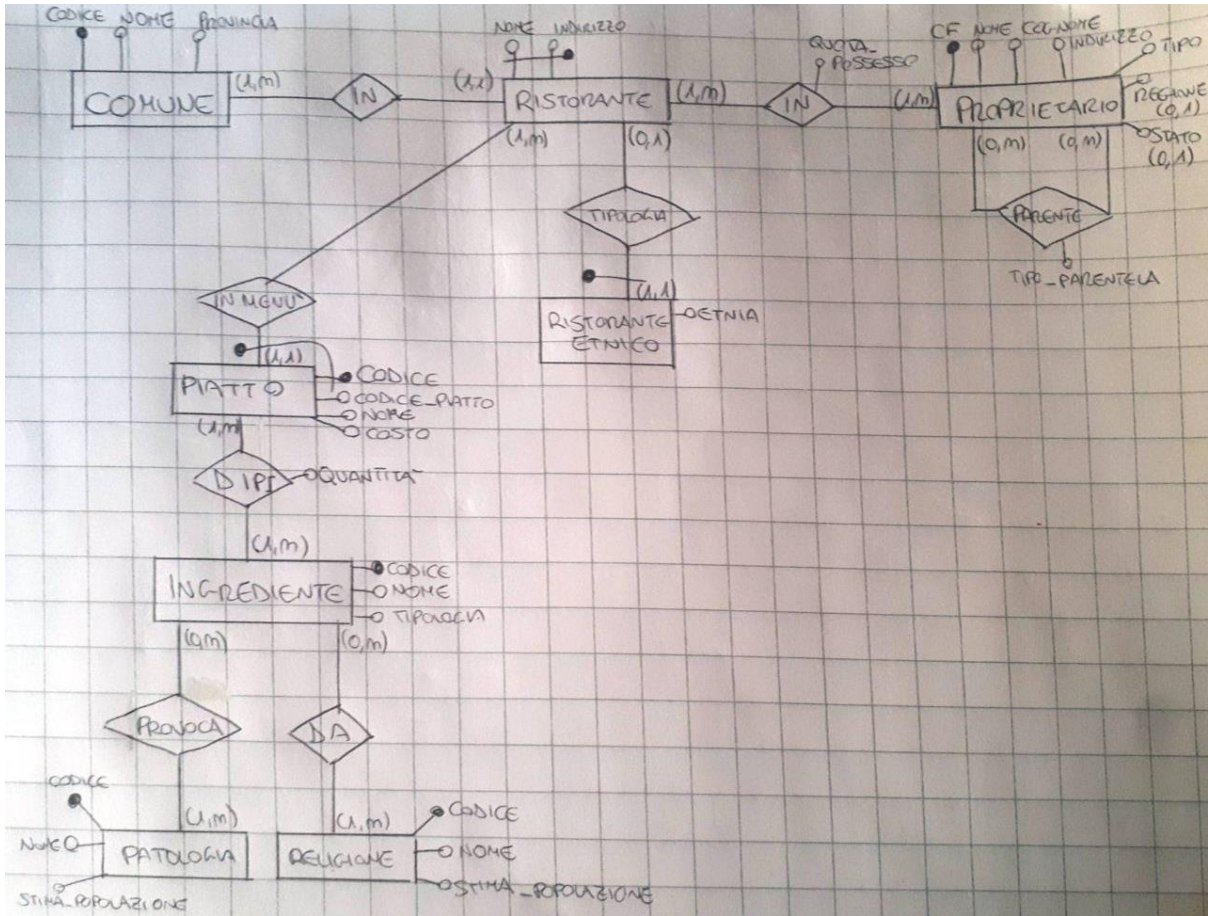 CODICE NOME PROVINCIA
COMUNE
(1,m)
IN
(1,1)
NOME INDIRIZZO
RISTORANTE
(1,m)
QUOTA_
POSSESSO
IN
(1,m)
CF NOME COGNOME
INDIRIZZO
TIPO
PROPRIETARIO
REGIONE
(0,1)
STATO
(0,1)
(0,m) (0,m)
PARENTE
TIPO_PARENTELA
(1,m)
(0,1)
TIPOLOGIA
(1,1)
RISTORANTE
ETNICO
ETNIA
IN MENU'
(1,1)
PIATTO
CODICE
CODICE_PIATTO
NOME
COSTO
(1,m)
QUANTITA'
(1,m)
INGREDIENTE
CODICE
NOME
TIPOLOGIA
(0,m)
(0,m)
PROVOCA
DA
CODICE
(1,m)
NOME
PATOLOGIA
STIMA_POPOLAZIONE
(1,m)
CODICE
RELIGIONE
NOME
STIMA_POPOLAZIONE